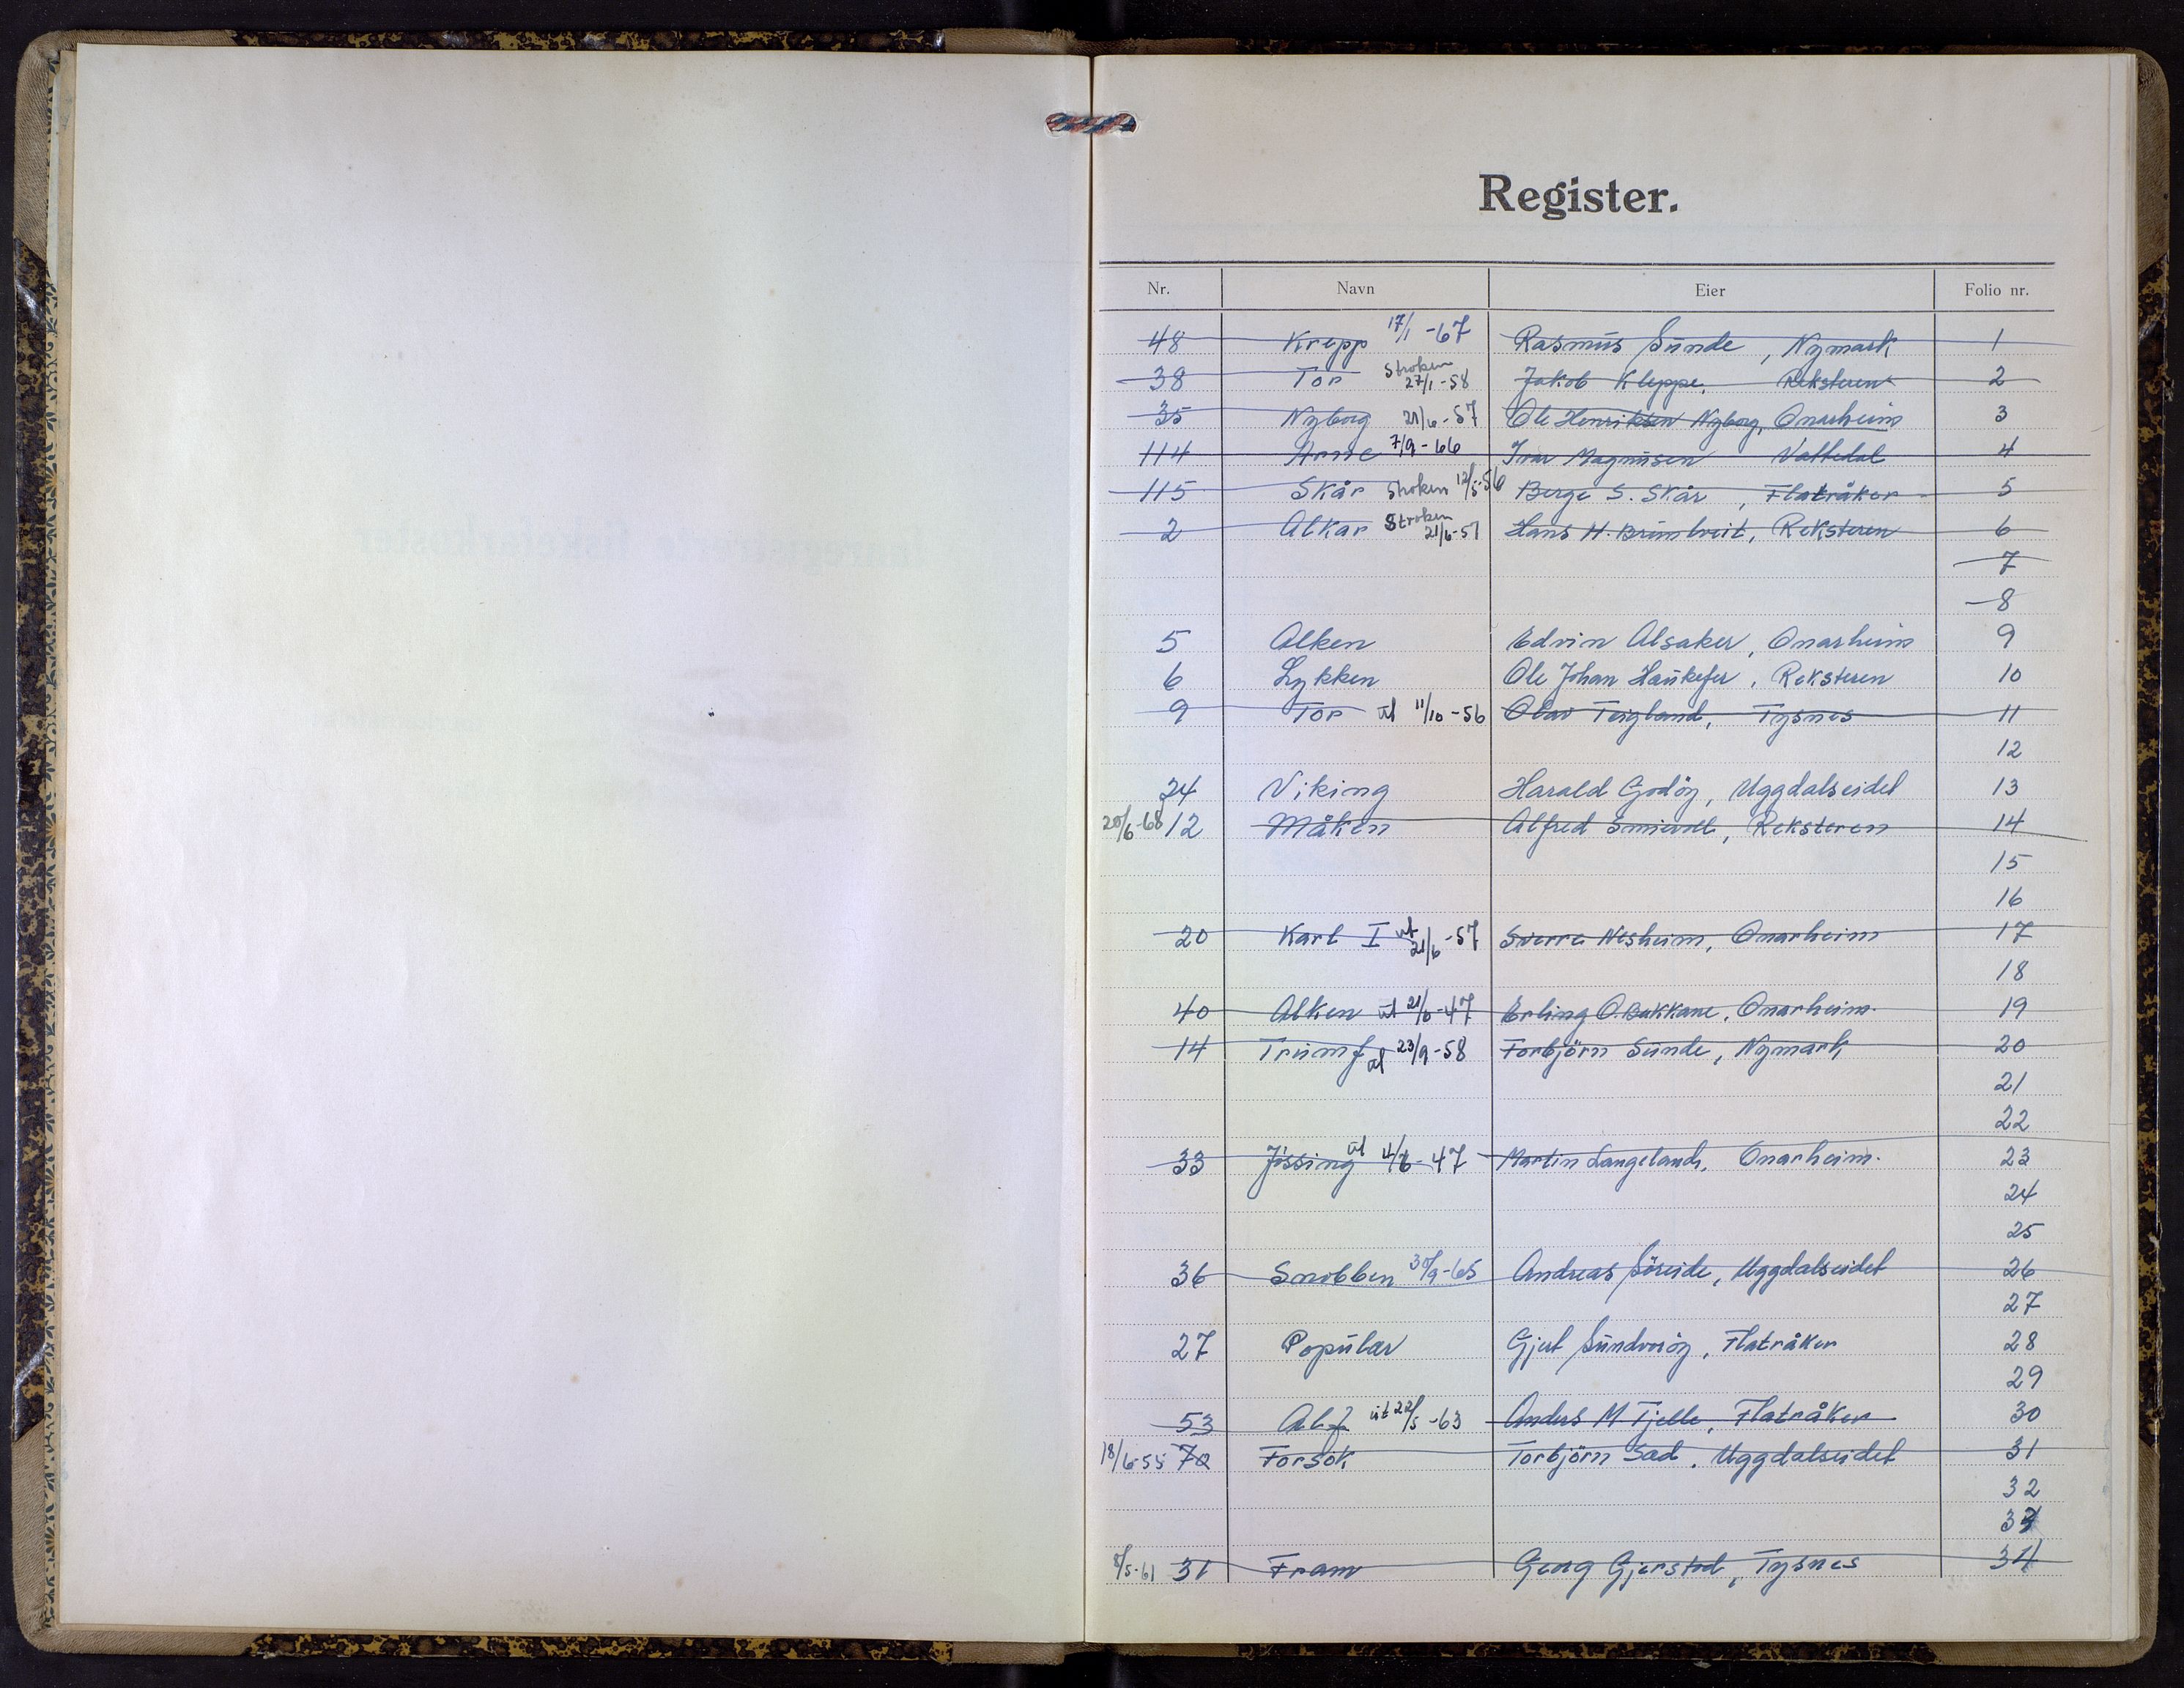 Register.
Nr. Navn Eier Folio nr.
48 Krepp 17/1 -67 Rasmus Sunde, Nymark 1
38 Tor Stroken 27/1-58 Jakob Kleppe, Reksteren 2
35 Nyborg 21/6-57 Ole Henriksen Nyborg, Onarheim 3
114 Arne 7/9-66 Ivar Magnusen Vattedal 4
115 Skår Stroken 12/5-56 Berge S. Skår, Flatråker 5
2 Alkar Stroken 21/6-57 Hans H. Reksteren 6
7
8
5 Alken Edvin Alsaker, Onarheim 9
6 Lykken Ole Johan Haukefer, Reksteren 10
9 Tor ut 11/10-56 Olav Teigland, Tysnes 11
12
24 Viking Harald Godöy, Uggdalseidet 13
20/6-68 12 Måken Alfred Reksteren 14
15
16
20 Karl I ut 21/6-57 Sverre Nesheim, Onarheim 17
18
40 Alken ut 21/6-47 Erling O. Bakkane, Onarheim. 19
14 Trumf ut 23/9-58 Torbjörn Sunde, Nymark 20
21
22
33 Jössing ut 4/6-47 Martin Langeland, Onarheim. 23
24
25
36 Snobben 30/9-65 Andreas Söreide, Uggdalseidet 26
27
27 Populær Gjert Sundvoröy, Flatråker 28
29
53 Alf ut 22/5-63 Anders M Tjelle, Flatråker 30
18/6-55 70 Forsök Torbjörn Sad, Uggdalseidet 31
32
33
8/5-61 31 Fram Georg Gjerstad, Tysnes 34